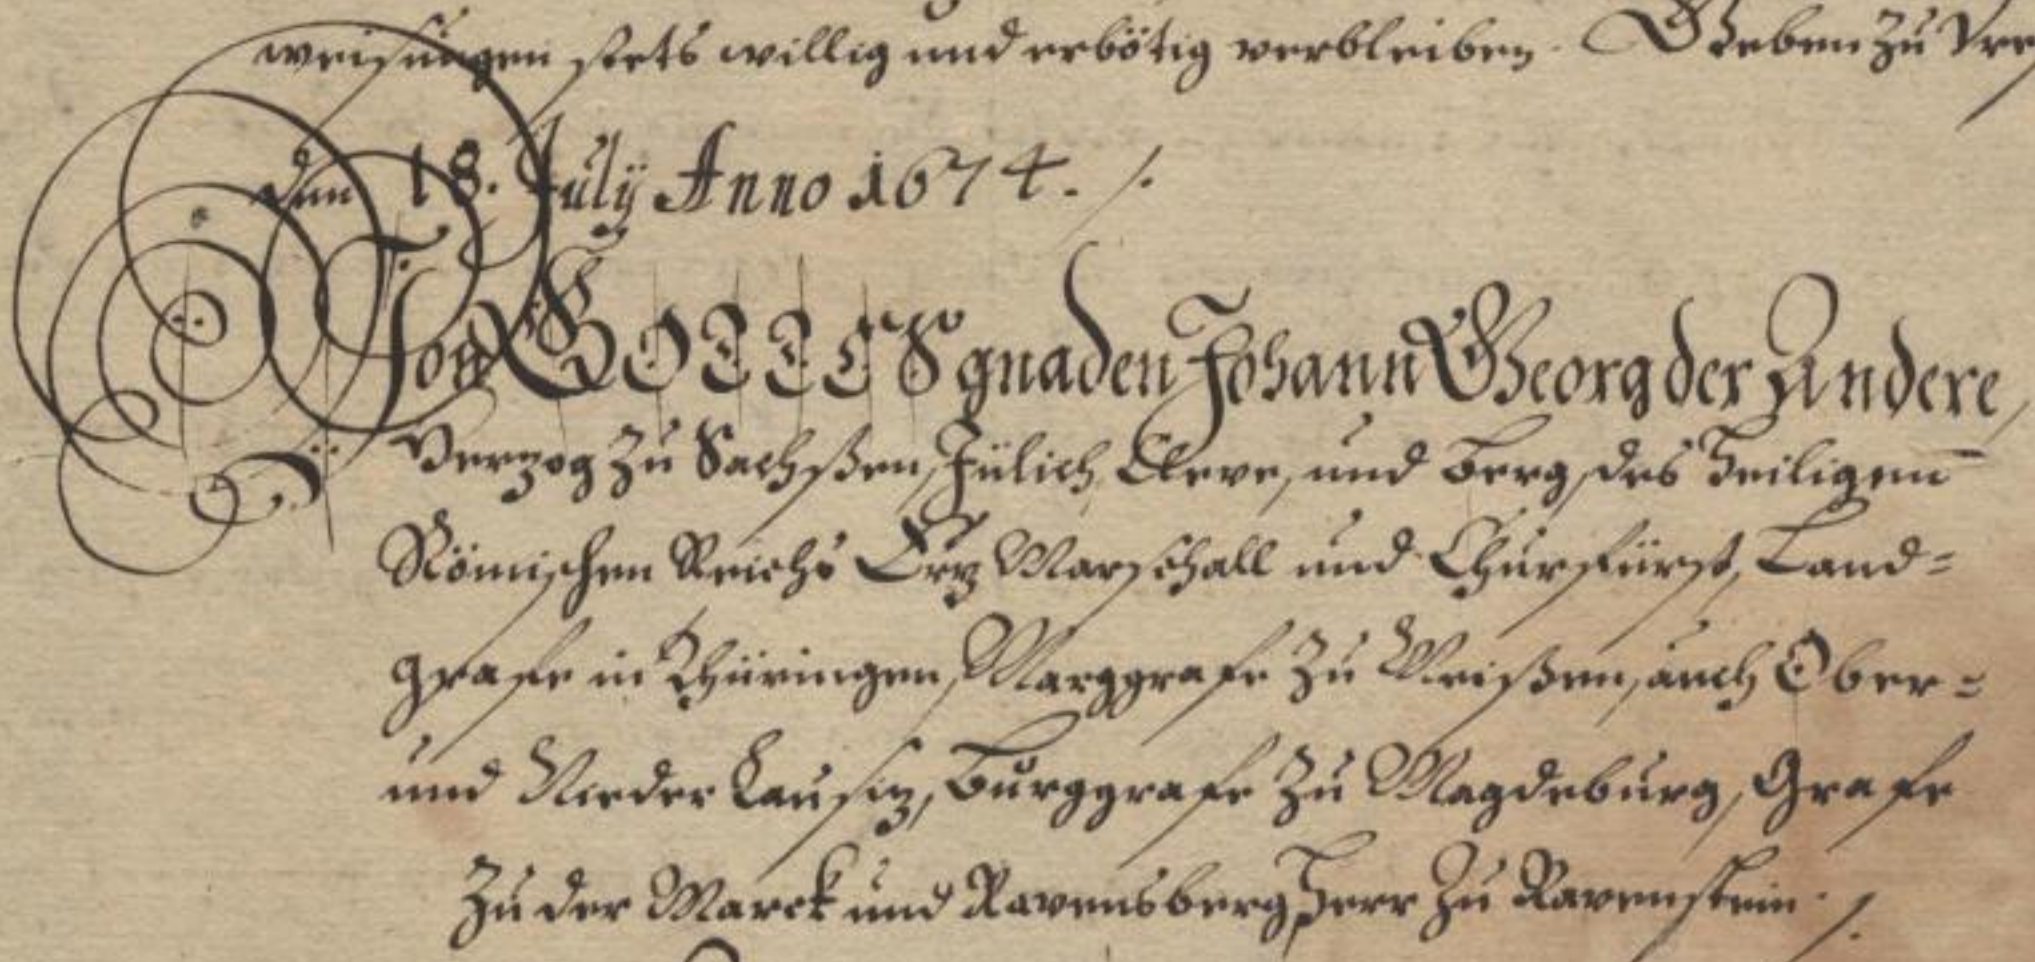 weisungen stets willig und erbötig verbleiben. Geben zu
den 18. July Anno 1674. /.
Von GOTTES gnaden Johann Georg der Andere,
Herzog zu Sachßen, Jülich, Cleve, und Berg, des Heiligen
Römischen Reichs Erz Marschall und Churfürst, Land-
grafe in Thüringen, Marggrafe zu Meißen, auch Ober-
und Nieder Lausiz, Burggrafe zu Magdeburg, Grafe
zu der Marck und Ravensberg, Herr zu Ravenstein. /.